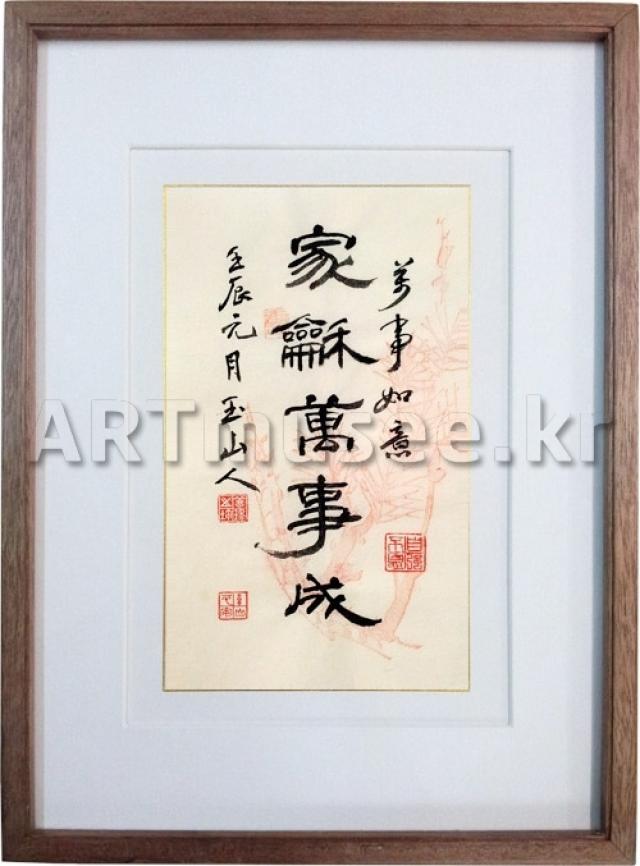 萬事如意
家龢萬事成
壬辰元月玉山人
ARTmusee.kr